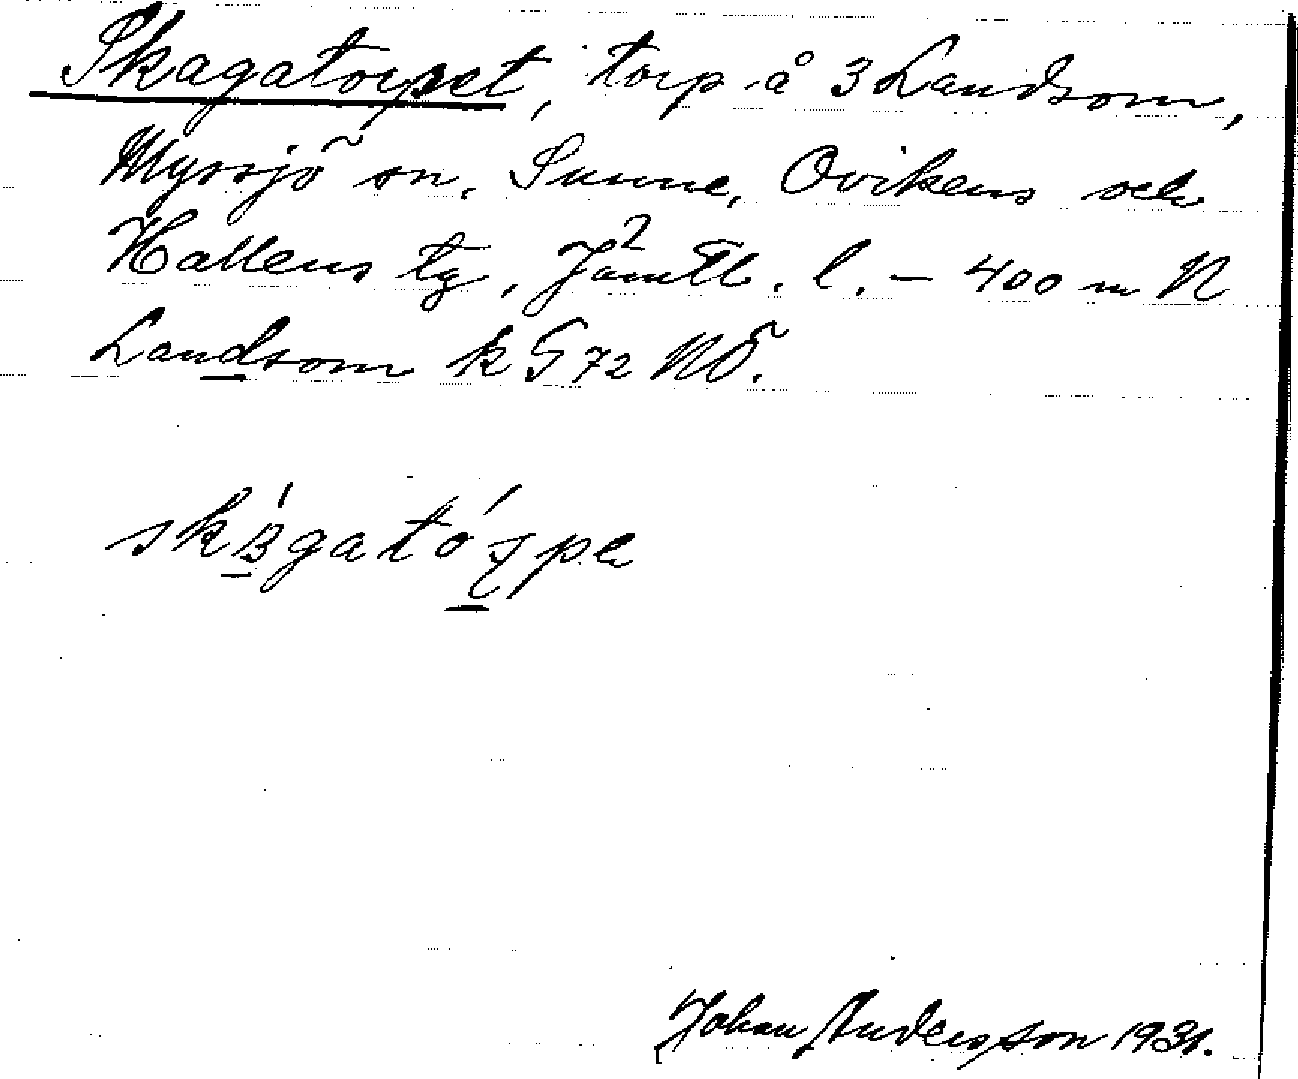 Skagatorpet, torp å 3 Landsom,
Myssjö sn. Sunne, Ovikens och
Hallens tg, Jämtl. l. – 400 m N
Landsom k G 72 NÖ.
Johan Andersson 1931.